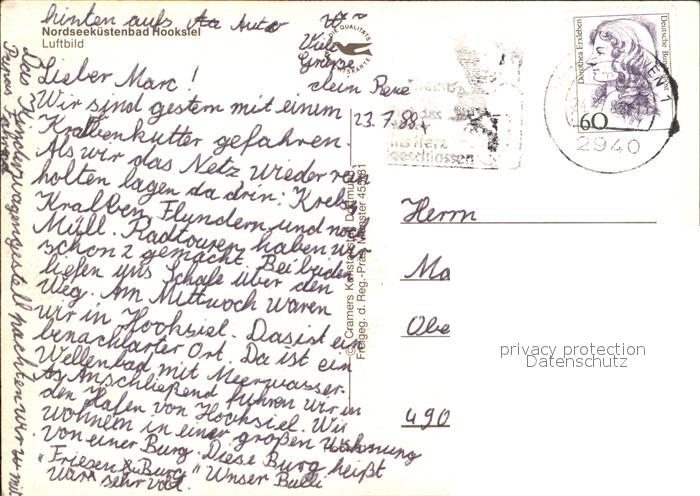 hinten aufs Auto
Nordseeküstenbad Hooksiel
Luftbild
Viele
Grüße
dein Rene
23.7.88
Lieber Marc!
Wir sind gestern mit einem
Krabbenkutter gefahren.
Als wir das Netz wieder rein
holten lagen da drin: Krebse
Krabben, Flundern und noch
Müll. Radtouren haben wir
schon 2 gemacht. Bei beiden
liefen uns Schafe über den
Weg. Am Mittwoch waren
wir in Hooksiel. Das ist ein
benachbarter Ort. Da ist ein
Wellenbad mit Meerwasser.
Anschließend fuhren wir in
den Hafen von Hooksiel. Wir
wohnen in einer großen Wohnung
von einer Burg. Diese Burg heißt
"Friesen Burg" Unser Bulli
war sehr voll.
Das
packten wir mit
Papas Fahrrad
© Cramers Kunstanstalt Dortmund
Freigeg. d. Reg.-Präs. Münster
Dorothea Erxleben
Deutsche Bundespost
60
2940
geschlossen
Herrn
Ma
Obe
490
privacy protection
Datenschutz